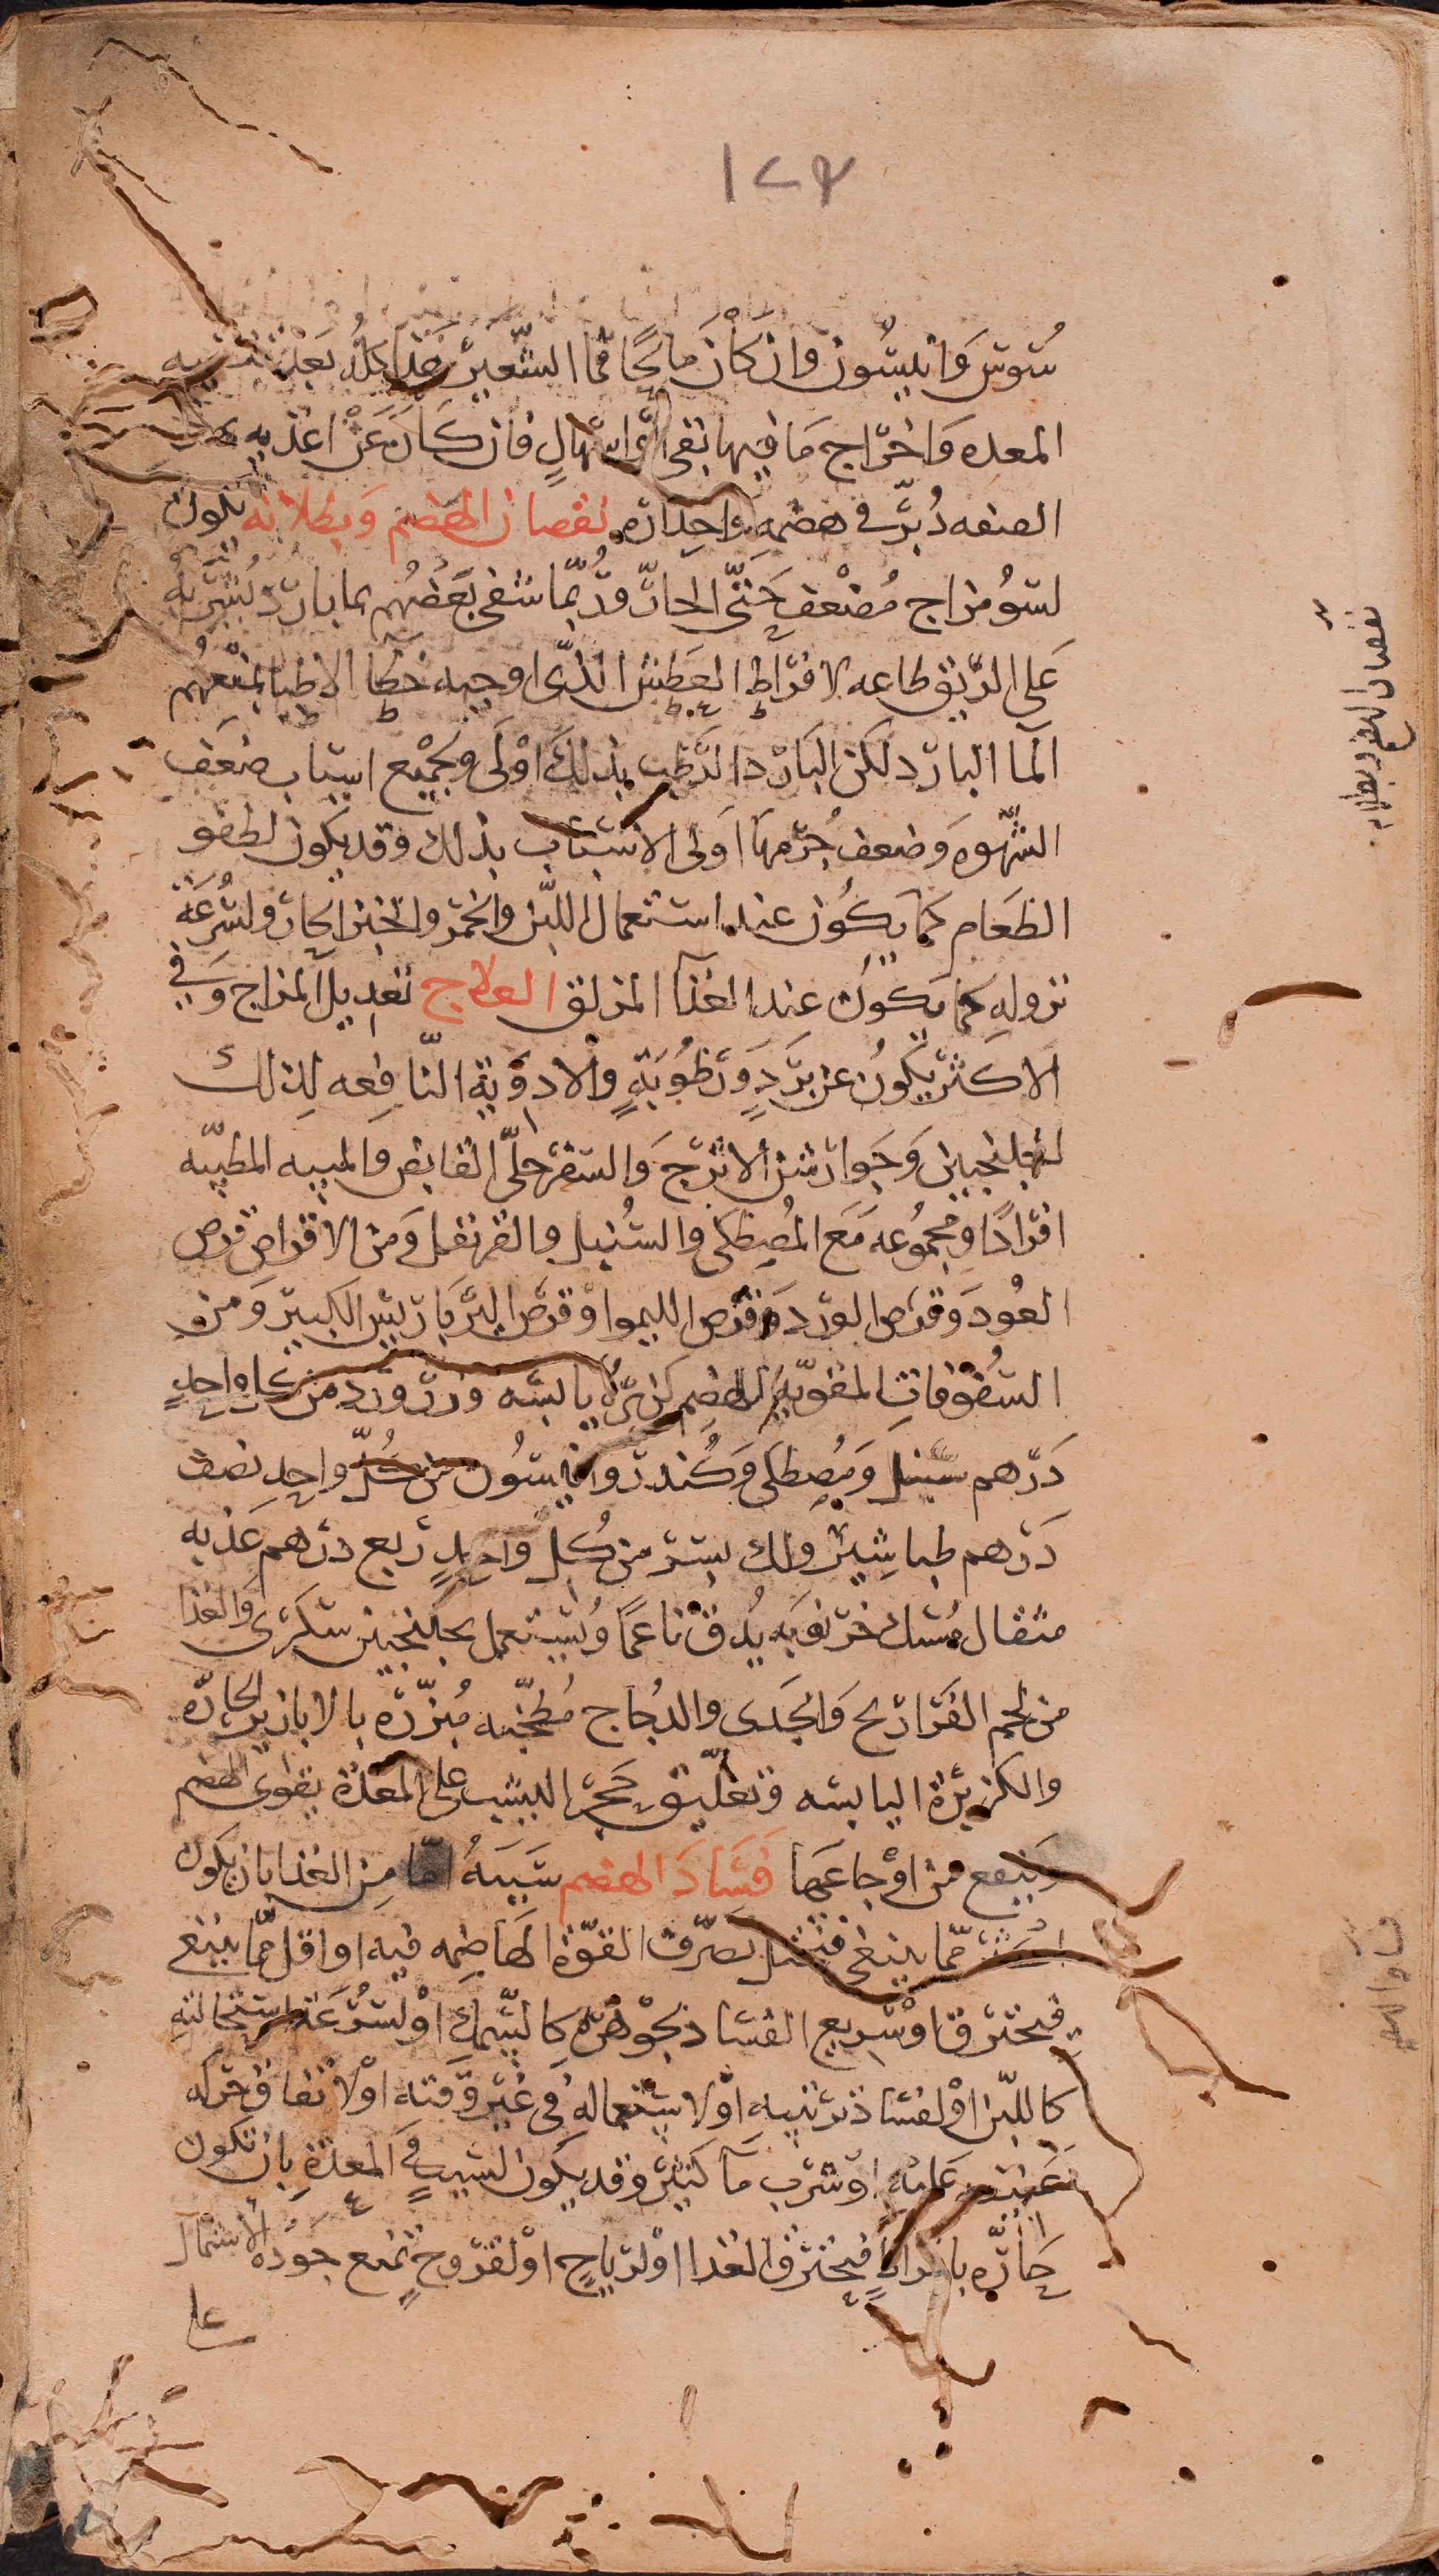 ١٢٣
سوس وانيسون وان كان مالحًا فما الشعير هذا كله بعد تنقيه
المعده واخراج ما فيها بقى او اسهالٍ فان كان عن اغذيه بهذه
الصفه دُبّر فى هضمه واحداره نقصان الهضم وبطلانه يكون
لسو مزاج مُضْعف حتى الحارّ وربّما شفى بَعضهُم بما باردٍ يُشربه
على الريق طاعه لافراط العطش الذى اوجبه خطا الاطبا بمنعهم
الما البارد لكن البارد الرطب بذلك اوْلى وبجميع اسباب ضعف
الشهوه وضعف جرمها اولى الاسباب بذلك وقد يكون لطفو
الطعام كما يكون عند استعمال اللبن والخمر والخبز الحار ولسُرعة
نزوله كما يكون عند الغذا المزلق العلاج تعديل المزاج وفى
الاكثر يكون عن بردٍ ورطوبةٍ والادوية النافعه لذلك
الجلنجبين وجوارشن الاترج والسفرجلّى القابض والميبه المطيّبه
افرادًا ومجموعه مع المصطكى والسُنبل والقرنفل ومن الاقراص قرص
العُود وقرص الورد وقرص الليموا وقرص البرباريس الكبير ومن
السُفوفات المقويّه للهضم كزبره يابسه وزر ورد من كل واحدٍ
درهم سنبل ومصطكى وكُندر وانيسُون من كلّ واحد نصف
درهم طباشير ولك بسر من كُل واحدٍ ربع درهم عذبه
مثقال مسك خرنوبه يُدق ناعمًا ويُستعمل بجلنجبين سكرى والغذا
من لحم الفراريح والجدى والدُجاج مُطجّنه مبزّره بالابازير الحارّه
والكزبرة اليابسه وتعليق حجر اليشب على المعدة يقوى الهضم
وينفع من اوْجاعها فسَاد الهضم سَببهُ امّا من الغذا بان يكون
اكثر ممّا ينبغى فيثقل تصرّف القوّة الهاضمه فيه او اقل ممّا ينبغى
فيحترق او سريع الفسَاد بجوْهره كالسّمك اوْ لسُرْعة استحالته
كاللبن اوْ لفسَاد ترتيبه اوْ لاستعماله فى غير وقته اوْ لاتفاق حركه
عنيفه عليه اوْ شرب ما كثير وقد يكون السبب فى المعدة بان تكون
حارّه بافراطٍ فيحترق الغذا اوْ لرياحٍ اوْ لقروحٍ تمنع جوده الاشتمال
على
نقصان الهضم وبطلانه
فساد الهضم